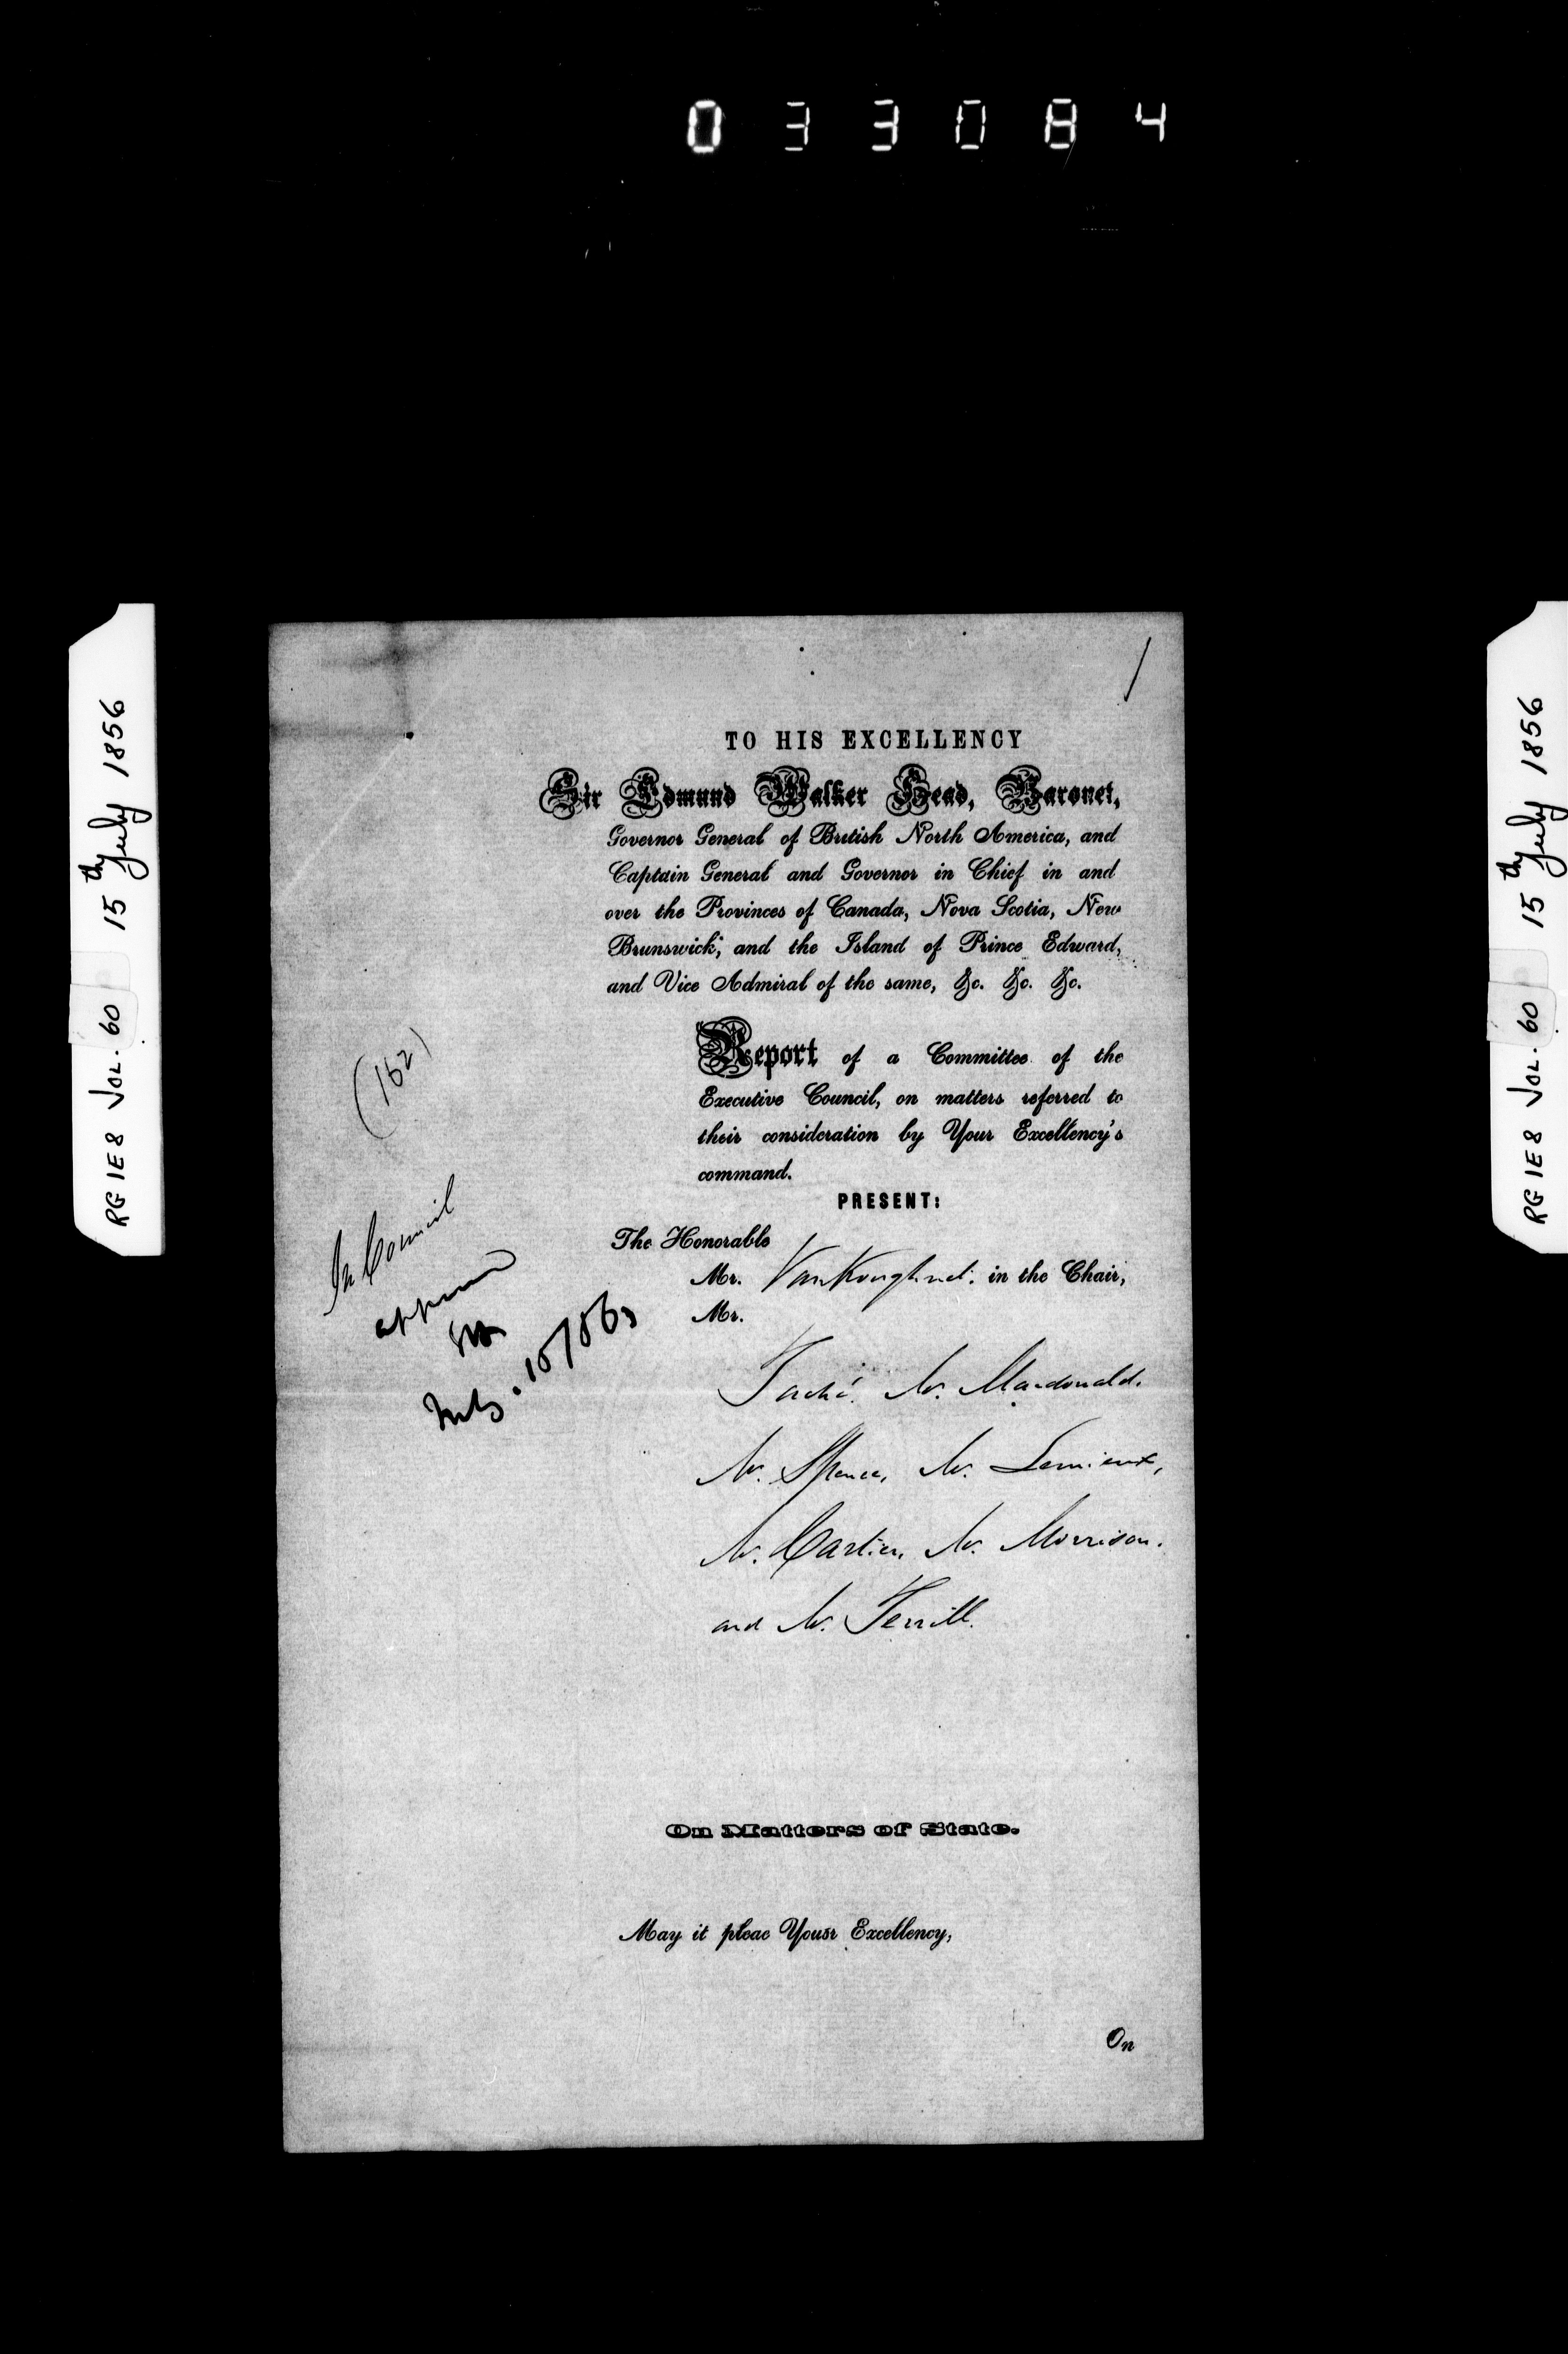 033084
RG 1E8 VOL. 60 15th July 1856
RG 1E8 VOL. 60 15th July 1856
TO HIS EXCELLENCY
Sir Edmund Walker Head, Baronet,
Governor General of British North America, and
Captain General and Governor in Chief in and
over the Provinces of Canada, Nova Scotia, New
Brunswick, and the Island of Prince Edward,
and Vice Admiral of the same, &c. &c. &c.
(162)
Report of a Committee of the
Executive Council, on matters referred to
their consideration by Your Excellency's
command.
PRESENT:
The Honorable
Mr. VanKoughnet: in the Chair,
Mr.
Taché, Mr. Macdonald.
Mr. Spence, Mr. Lemieux,
Mr. Cartier, Mr. Morrison.
and Mr. Terrill.
In Council
approved
July. 15/56
On Matters of State.
May it pleae Yousr Excellency,
On